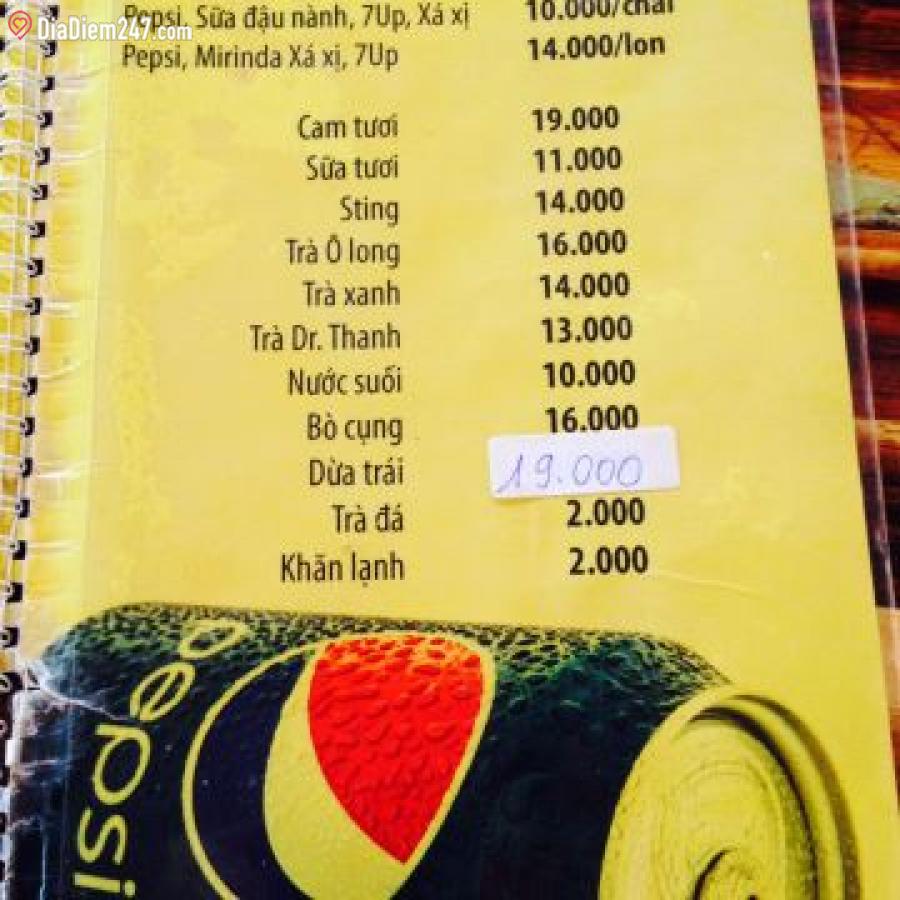 DiaDiem247.com
Pepsi, Sữa đậu nành, 7Up, Xá xị 10.000/chai
Pepsi, Mirinda Xá xị, 7Up 14.000/lon
Cam tươi 19.000
Sữa tươi 11.000
Sting 14.000
Trà Ô long 16.000
Trà xanh 14.000
Trà Dr. Thanh 13.000
Nước suối 10.000
Bò cụng 16.000
Dừa trái 19.000
Trà đá 2.000
Khăn lạnh 2.000
pepsi